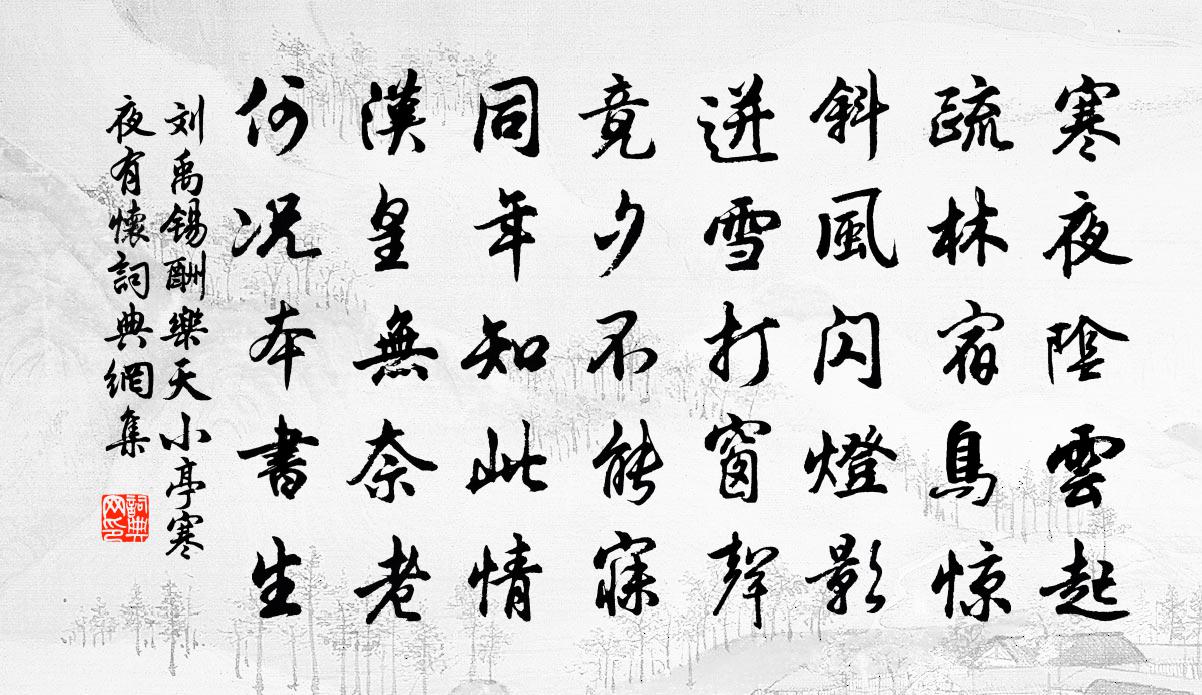 寒夜陰雲起
疏林宿鳥惊
斜風閃燈影
迸雪打窗聲
竟夕不能寐
同年知此情
漢皇無奈老
何况本書生
刘禹锡酬樂天小亭寒
夜有懷詞典網集
詞典
网印